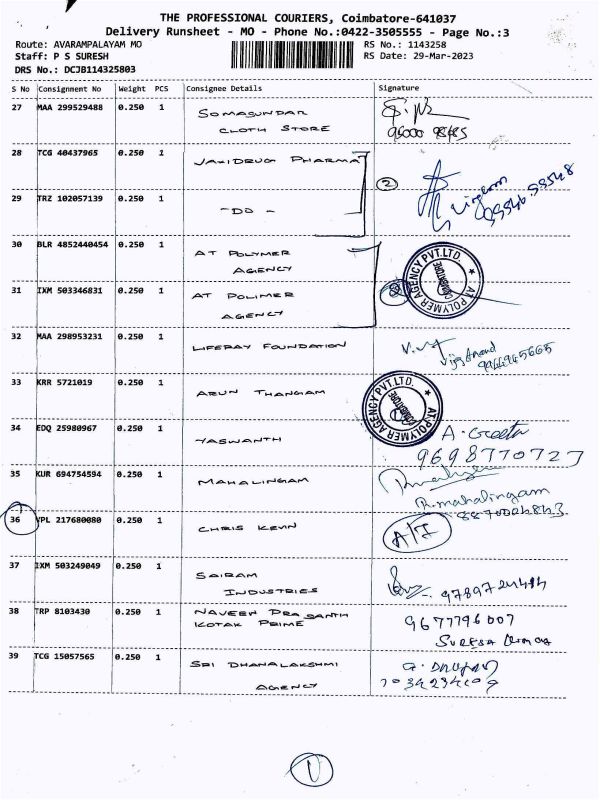 THE PROFESSIONAL COURIERS, Coimbatore-641037
Delivery Runsheet - MO - Phone No.:0422-3505555 - Page No.:3
Route: AVARAMPALAYAM MO
RS No.: 1143258
Staff: P S SURESH
RS Date: 29-Mar-2023
DRS No.: DCJB114325803
S No Consignment No Weight PCS Consignee Details Signature
27 MAA 299529488 0.250 1 SOMASUNDAR
CLOTH STORE
28 TCG 40437965 0.250 1 PHARMA
2
29 TRZ 102057139 0.250 1 -DO-
30 BLR 4852440454 0.250 1 AT POLYMER
AGENCY
AT POLYMER AGENCY PVT.LTD.
COIMBATORE
31 IXM 503346831 0.250 1 AT POLIMER
AGENCY
32 MAA 298953231 0.250 1 LIFERAY FOUNDATION
Vijay Anand
9944945665
33 KRR 5721019 0.250 1 ARUN THANGAM
AT POLYMER AGENCY PVT.LTD.
COIMBATORE
34 EDQ 25980967 0.250 1 YASWANTH
A. Geeta
9698770727
35 KUR 694754594 0.250 1 MAHALINGAM
R.mahalingam
36 VPL 217680080 0.250 1 CHRIS KEVIN
A/I
37 IXM 503249049 0.250 1 SAIRAM
INDUSTRIES
38 TRP 8103430 0.250 1 NAVEEN PRASANTH
KOTAK PRIME
9677796007
39 TCG 15057565 0.250 1 SRI DHANALAKSHMI
AGENCY
1